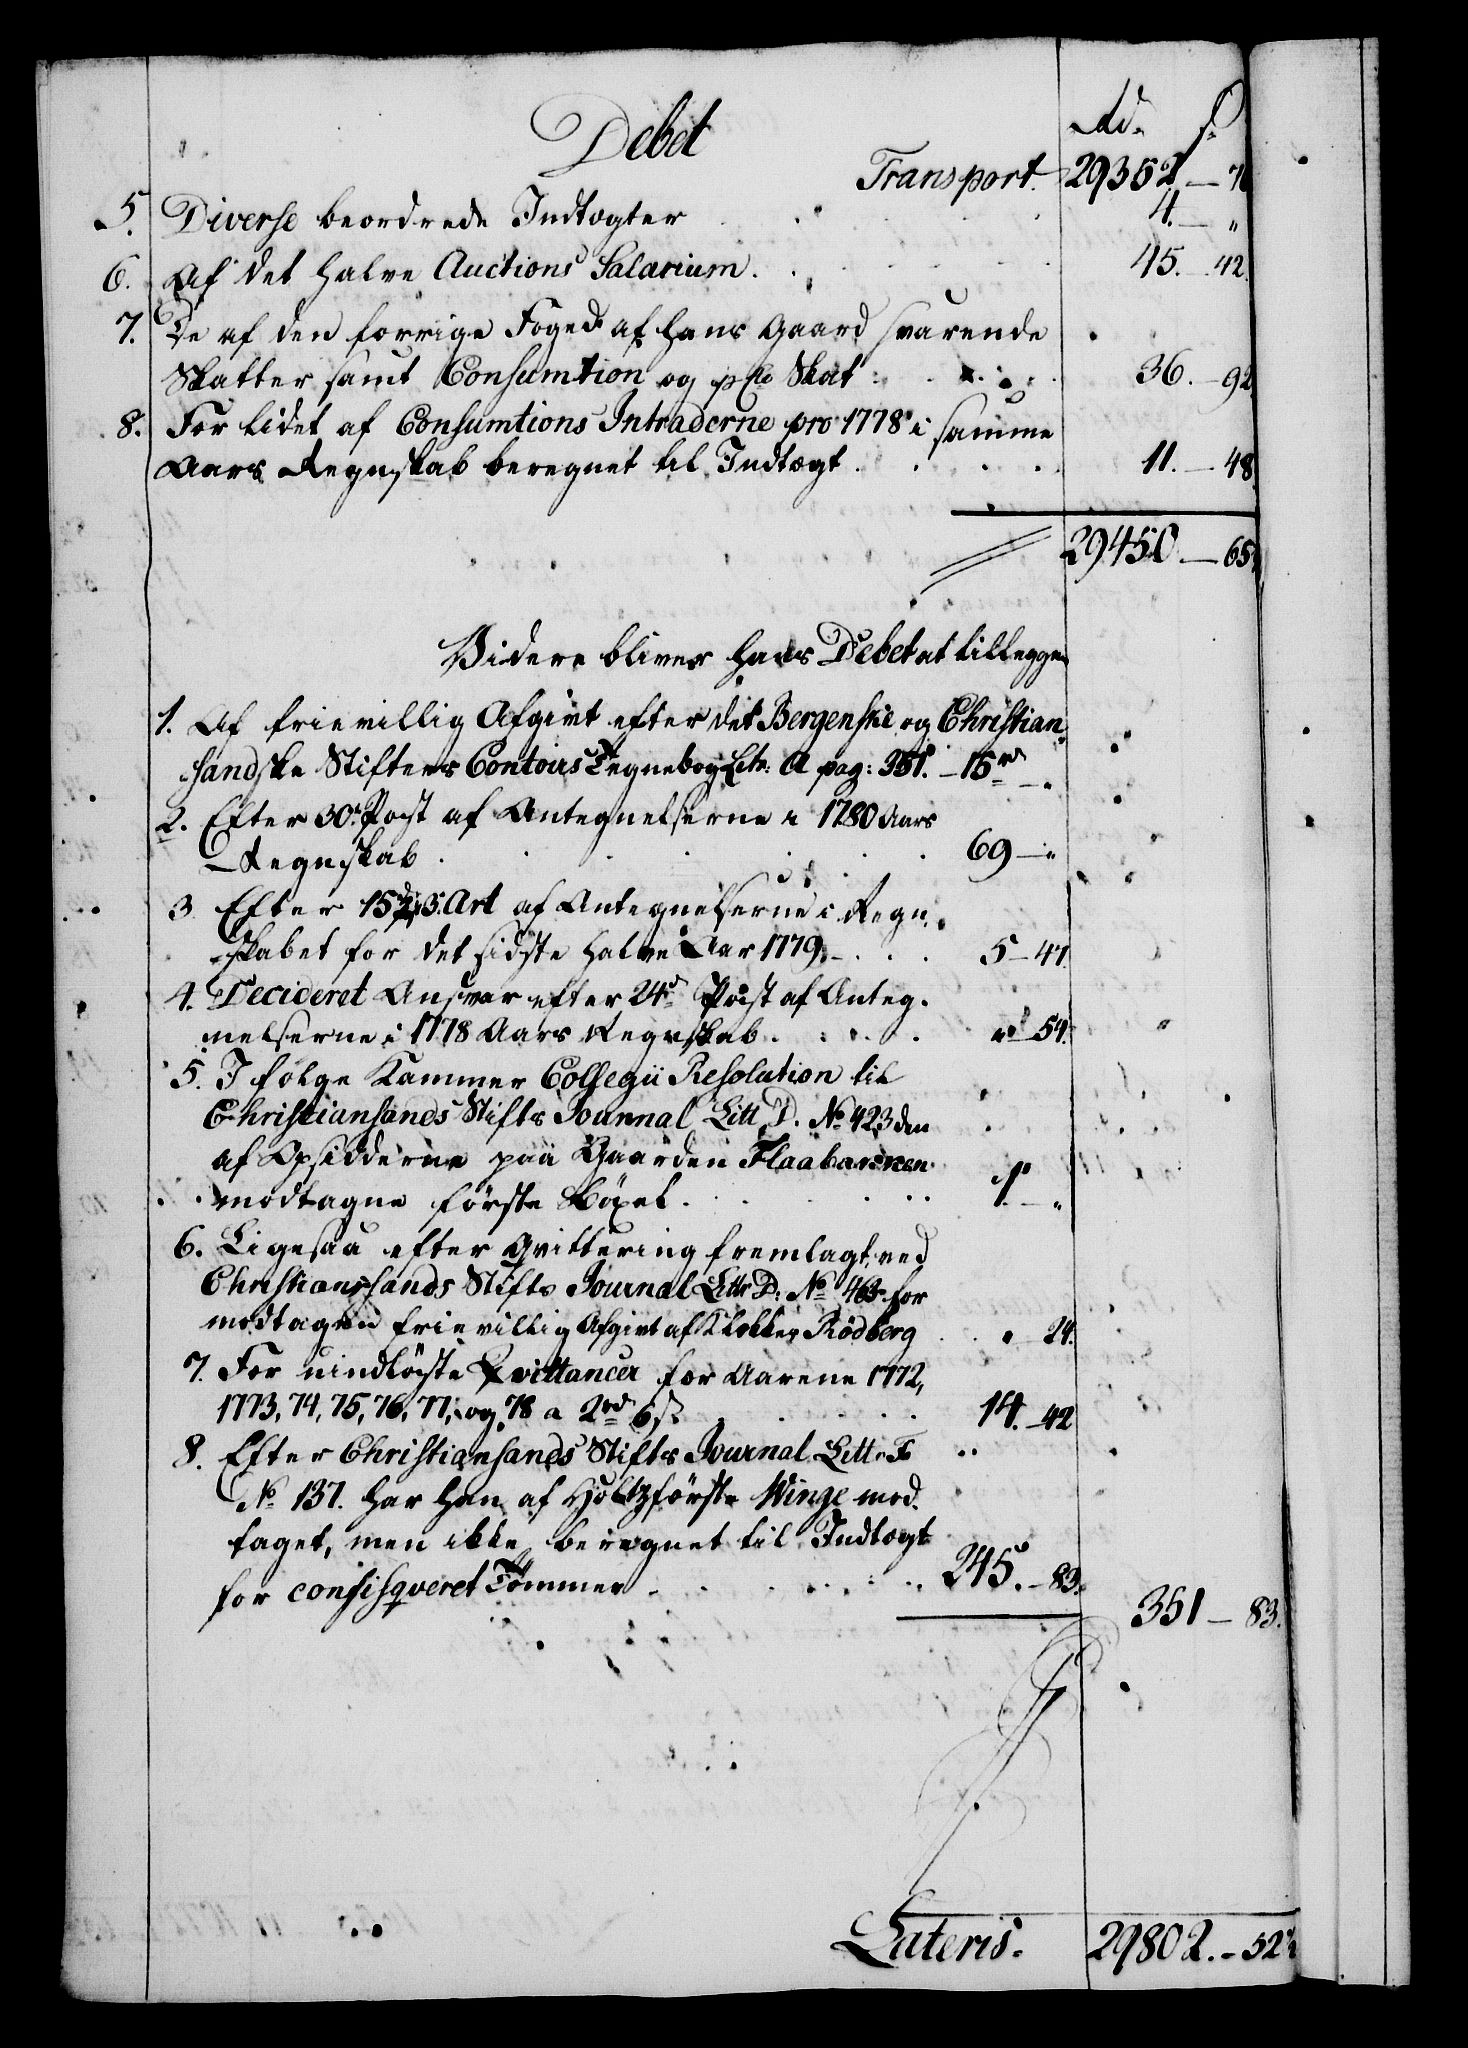 Debet
Rd. ß
Transport. 29352 — 7
5. Diverse beordrede Indtægter 4. — "
6. Af det halve Auctions Salarium. 45. — 42.
7. De af den forrige Foged af hans Gaard svarende
Skatter samt Consumtion og Skat 36. — 92
8. Forlidet af Consumtions Intraderne pro 1778 i samme
Aars Regnskab beregnet til Indtægt. 11. — 48.
29450 — 65
Videre bliver hans Debet at tillegge
1. Af frievillig Afgivt efter det Bergenske og Christian-
sandske Stifters Contoirs Tegnebog Litr: A pag: 351. — 15 rd — "
2. Efter 30te Post af Antegnelserne i 1780 Aars
Regnskab. 69 — "
3. Efter 15de 3. Art af Antegnelserne i Regn-
skabet for det sidste halve Aar 1779. 5 — 47.
4. Decideret Ansvar efter 24de Post af Anteg-
nelserne i 1778 Aars Regnskab. " 54.
5. I følge Kammer Collegii Resolution til
Christiansands Stifts Journal Litt. D. No. 423 den
af Opsidderne paa Gaarden
modtagne første Bøxel. 1. — "
6. Ligesaa efter Qvittering fremlagt ved
Christianssands Stifts Journal Littr D: No 463 for
modtagen frievillig Afgivt af Klokker Rødberg " 24.
7. For uindløste Qvittancer for Aarene 1772,
1773, 74, 75, 76, 77, og 78 a 2 rd 6 ß. 14. — 42
8. Efter Christiansands Stifts Journal Litt. F
No. 137. har han af Holtzførster Winge mod-
taget, men ikke beregnet til Indtægt
for confisqveret Tømmer. 245. — 83.
351 — 83.
Lateris. 29802. — 52